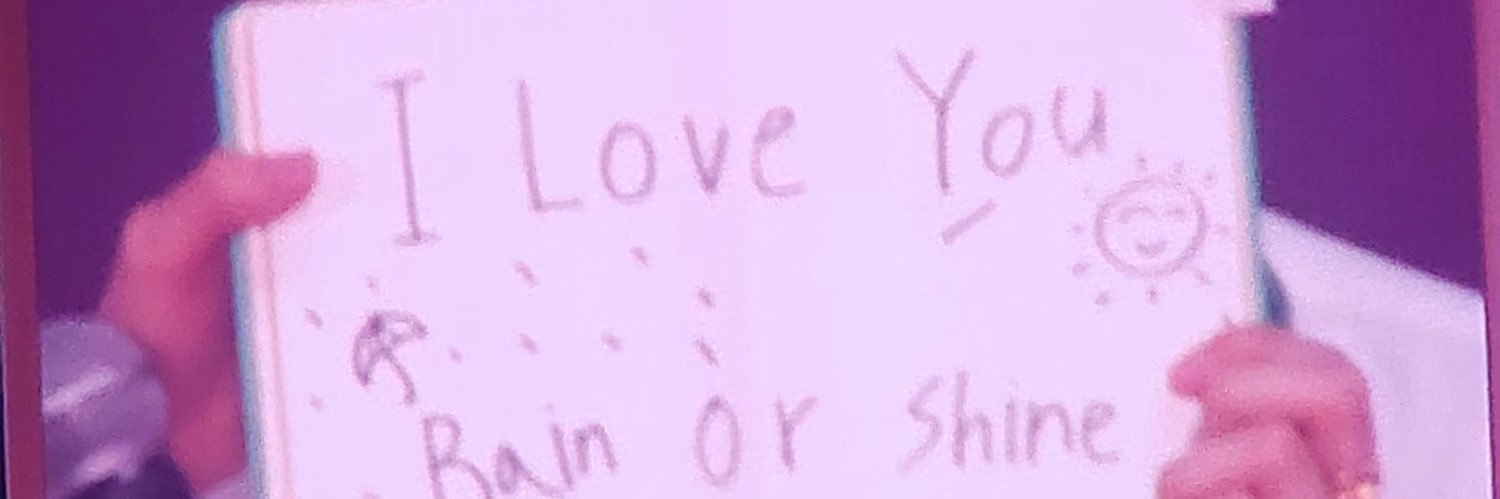 I Love You
Rain or Shine